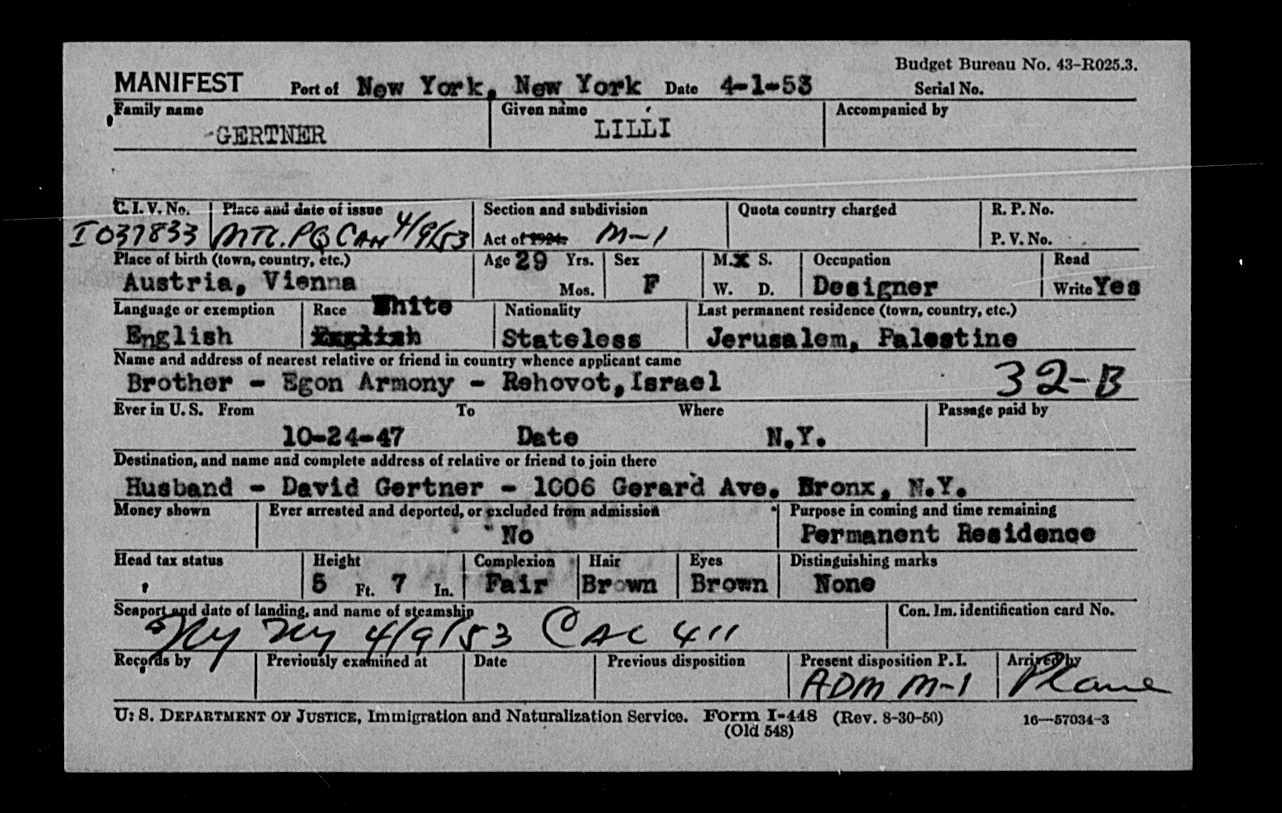 Budget Bureau No. 43-R025.3.
MANIFEST Port of New York, New York Date 4-1-53 Serial No.
Family name Given name Accompanied by
GERTNER LILLI
C.I.V. No. Place and date of issue Section and subdivision Quota country charged R. P. No.
I 037833 MTL. PQ CAN 4/9/53 Act of 1924. M-1 P. V. No.
Place of birth (town, country, etc.) Age 29 Yrs. Sex M. X S. Occupation Read
Austria, Vienna Mos. F W. D. Designer Write Yes
Language or exemption Race White Nationality Last permanent residence (town, country, etc.)
English English Stateless Jerusalem, Palestine
Name and address of nearest relative or friend in country whence applicant came
Brother - Egon Armony - Rehovot, Israel 32-B
Ever in U. S. From To Where Passage paid by
10-24-47 Date N.Y.
Destination, and name and complete address of relative or friend to join there
Husband - David Gertner - 1006 Gerard Ave. Bronx, N.Y.
Money shown Ever arrested and deported, or excluded from admission Purpose in coming and time remaining
No Permanent Residence
Head tax status Height Complexion Hair Eyes Distinguishing marks
5 Ft. 7 In. Fair Brown Brown None
Seaport and date of landing, and name of steamship Con. Im. identification card No.
NY NY 4/9/53 CAC 411
Records by Previously examined at Date Previous disposition Present disposition P. I. Arrived by
ADM M-1 Plane
U. S. DEPARTMENT OF JUSTICE, Immigration and Naturalization Service. Form I-448 (Rev. 8-30-50) 16—57034-3
(Old 548)